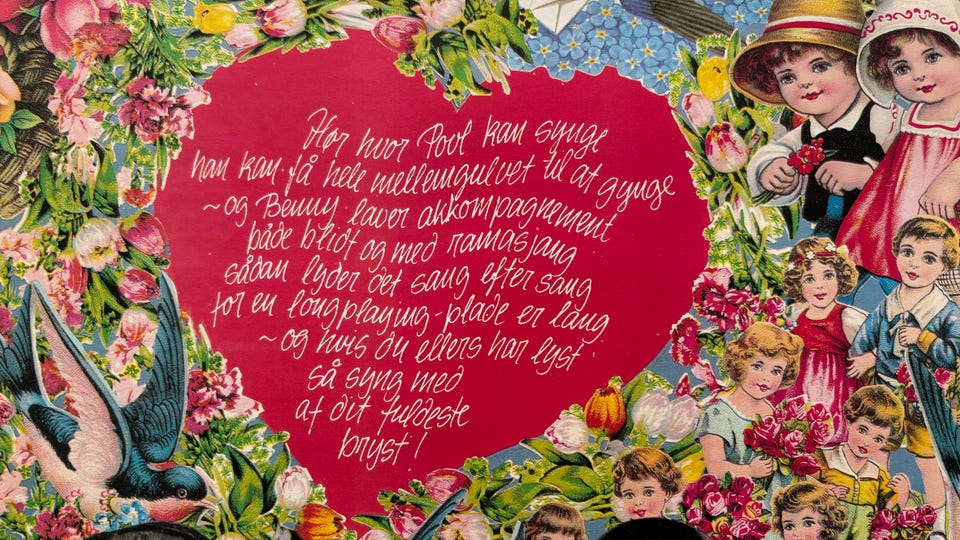 Hør hvor Poul kan synge
han kan få hele mellemgulvet til at gynge
~og Benny laver akkompagnement
både blidt og med ramasjang
sådan lyder det sang efter sang
for en longplaying-plade er lang
~og hvis du ellers har lyst
så syng med
af dit fuldeste
bryst!